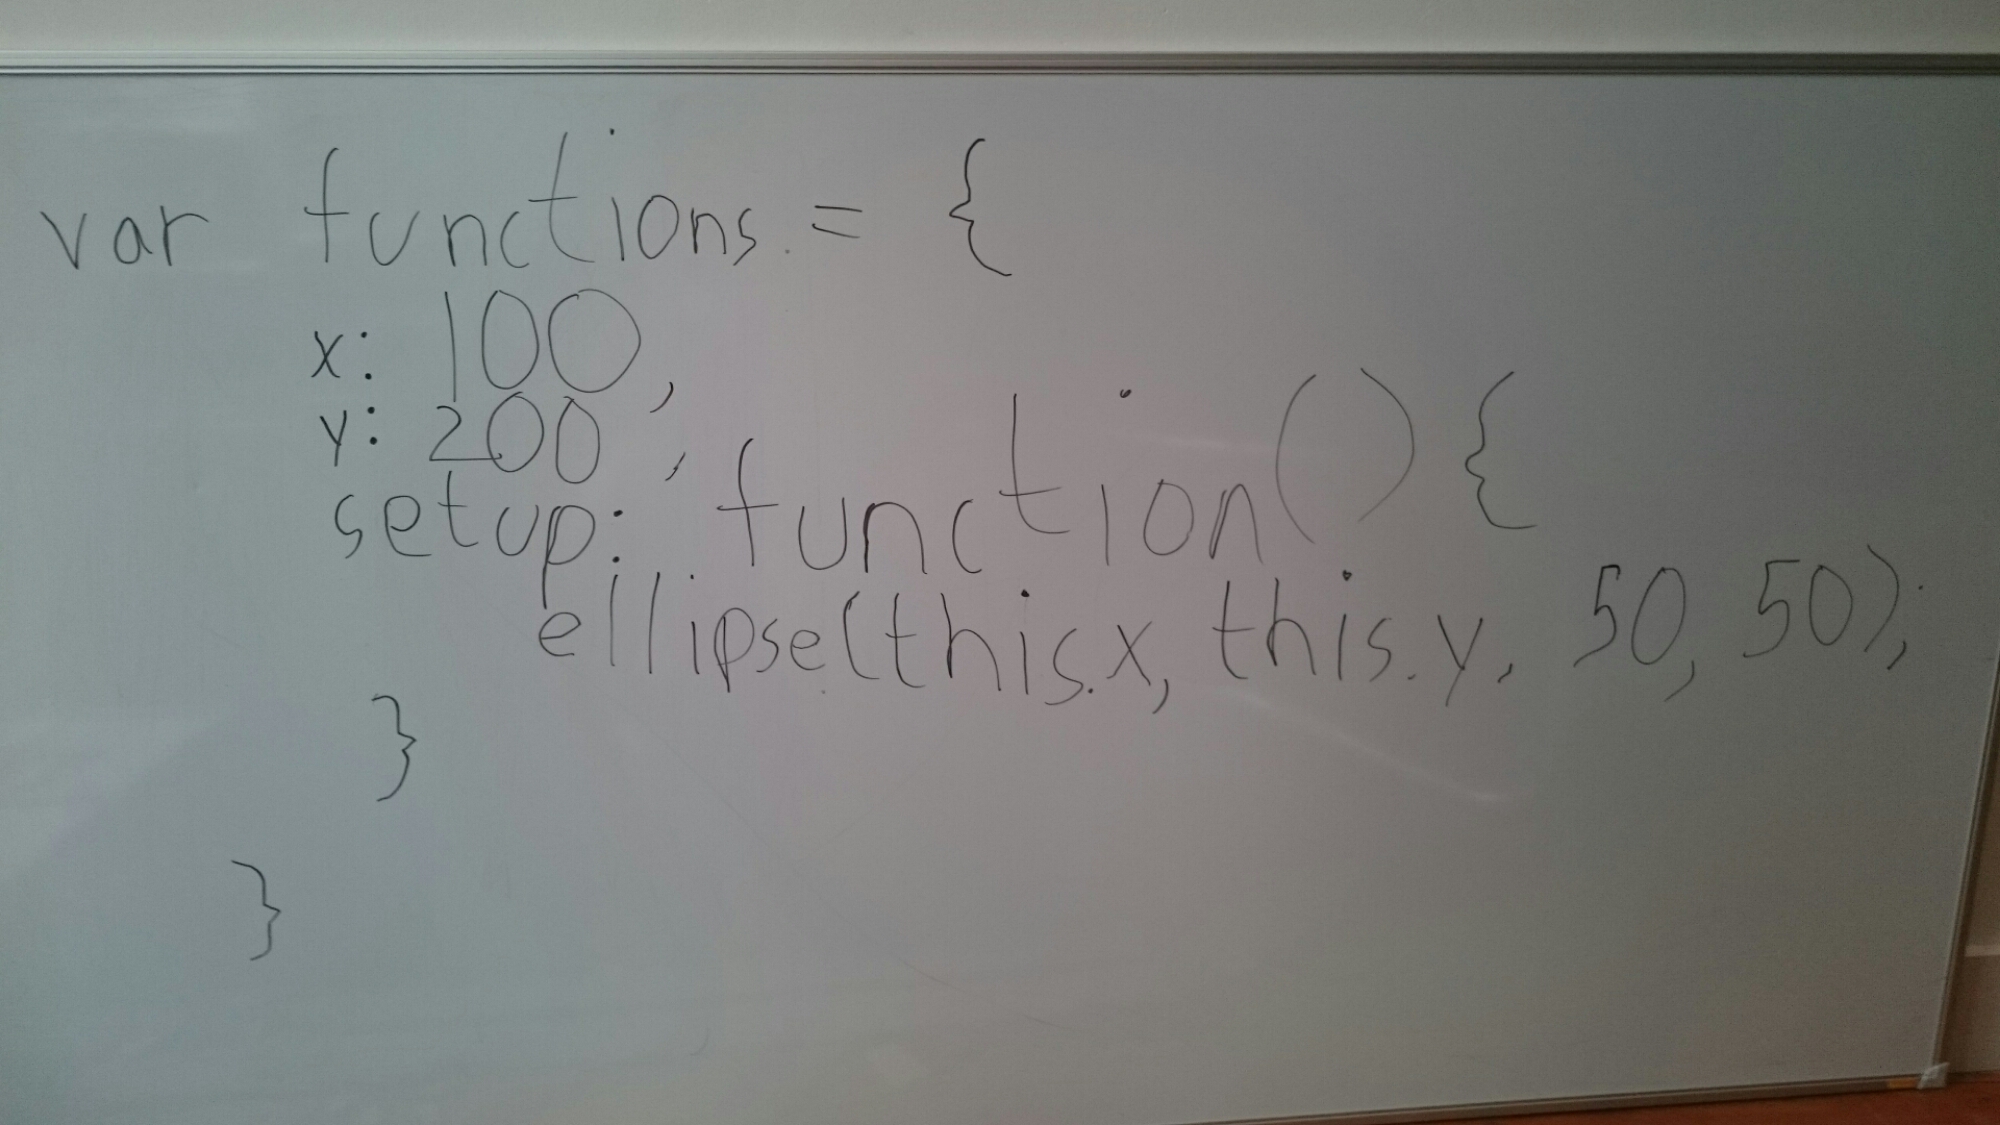 var functions = {
x: 100,
y: 200,
setup: function() {
ellipse(this.x, this.y, 50, 50);
}
}